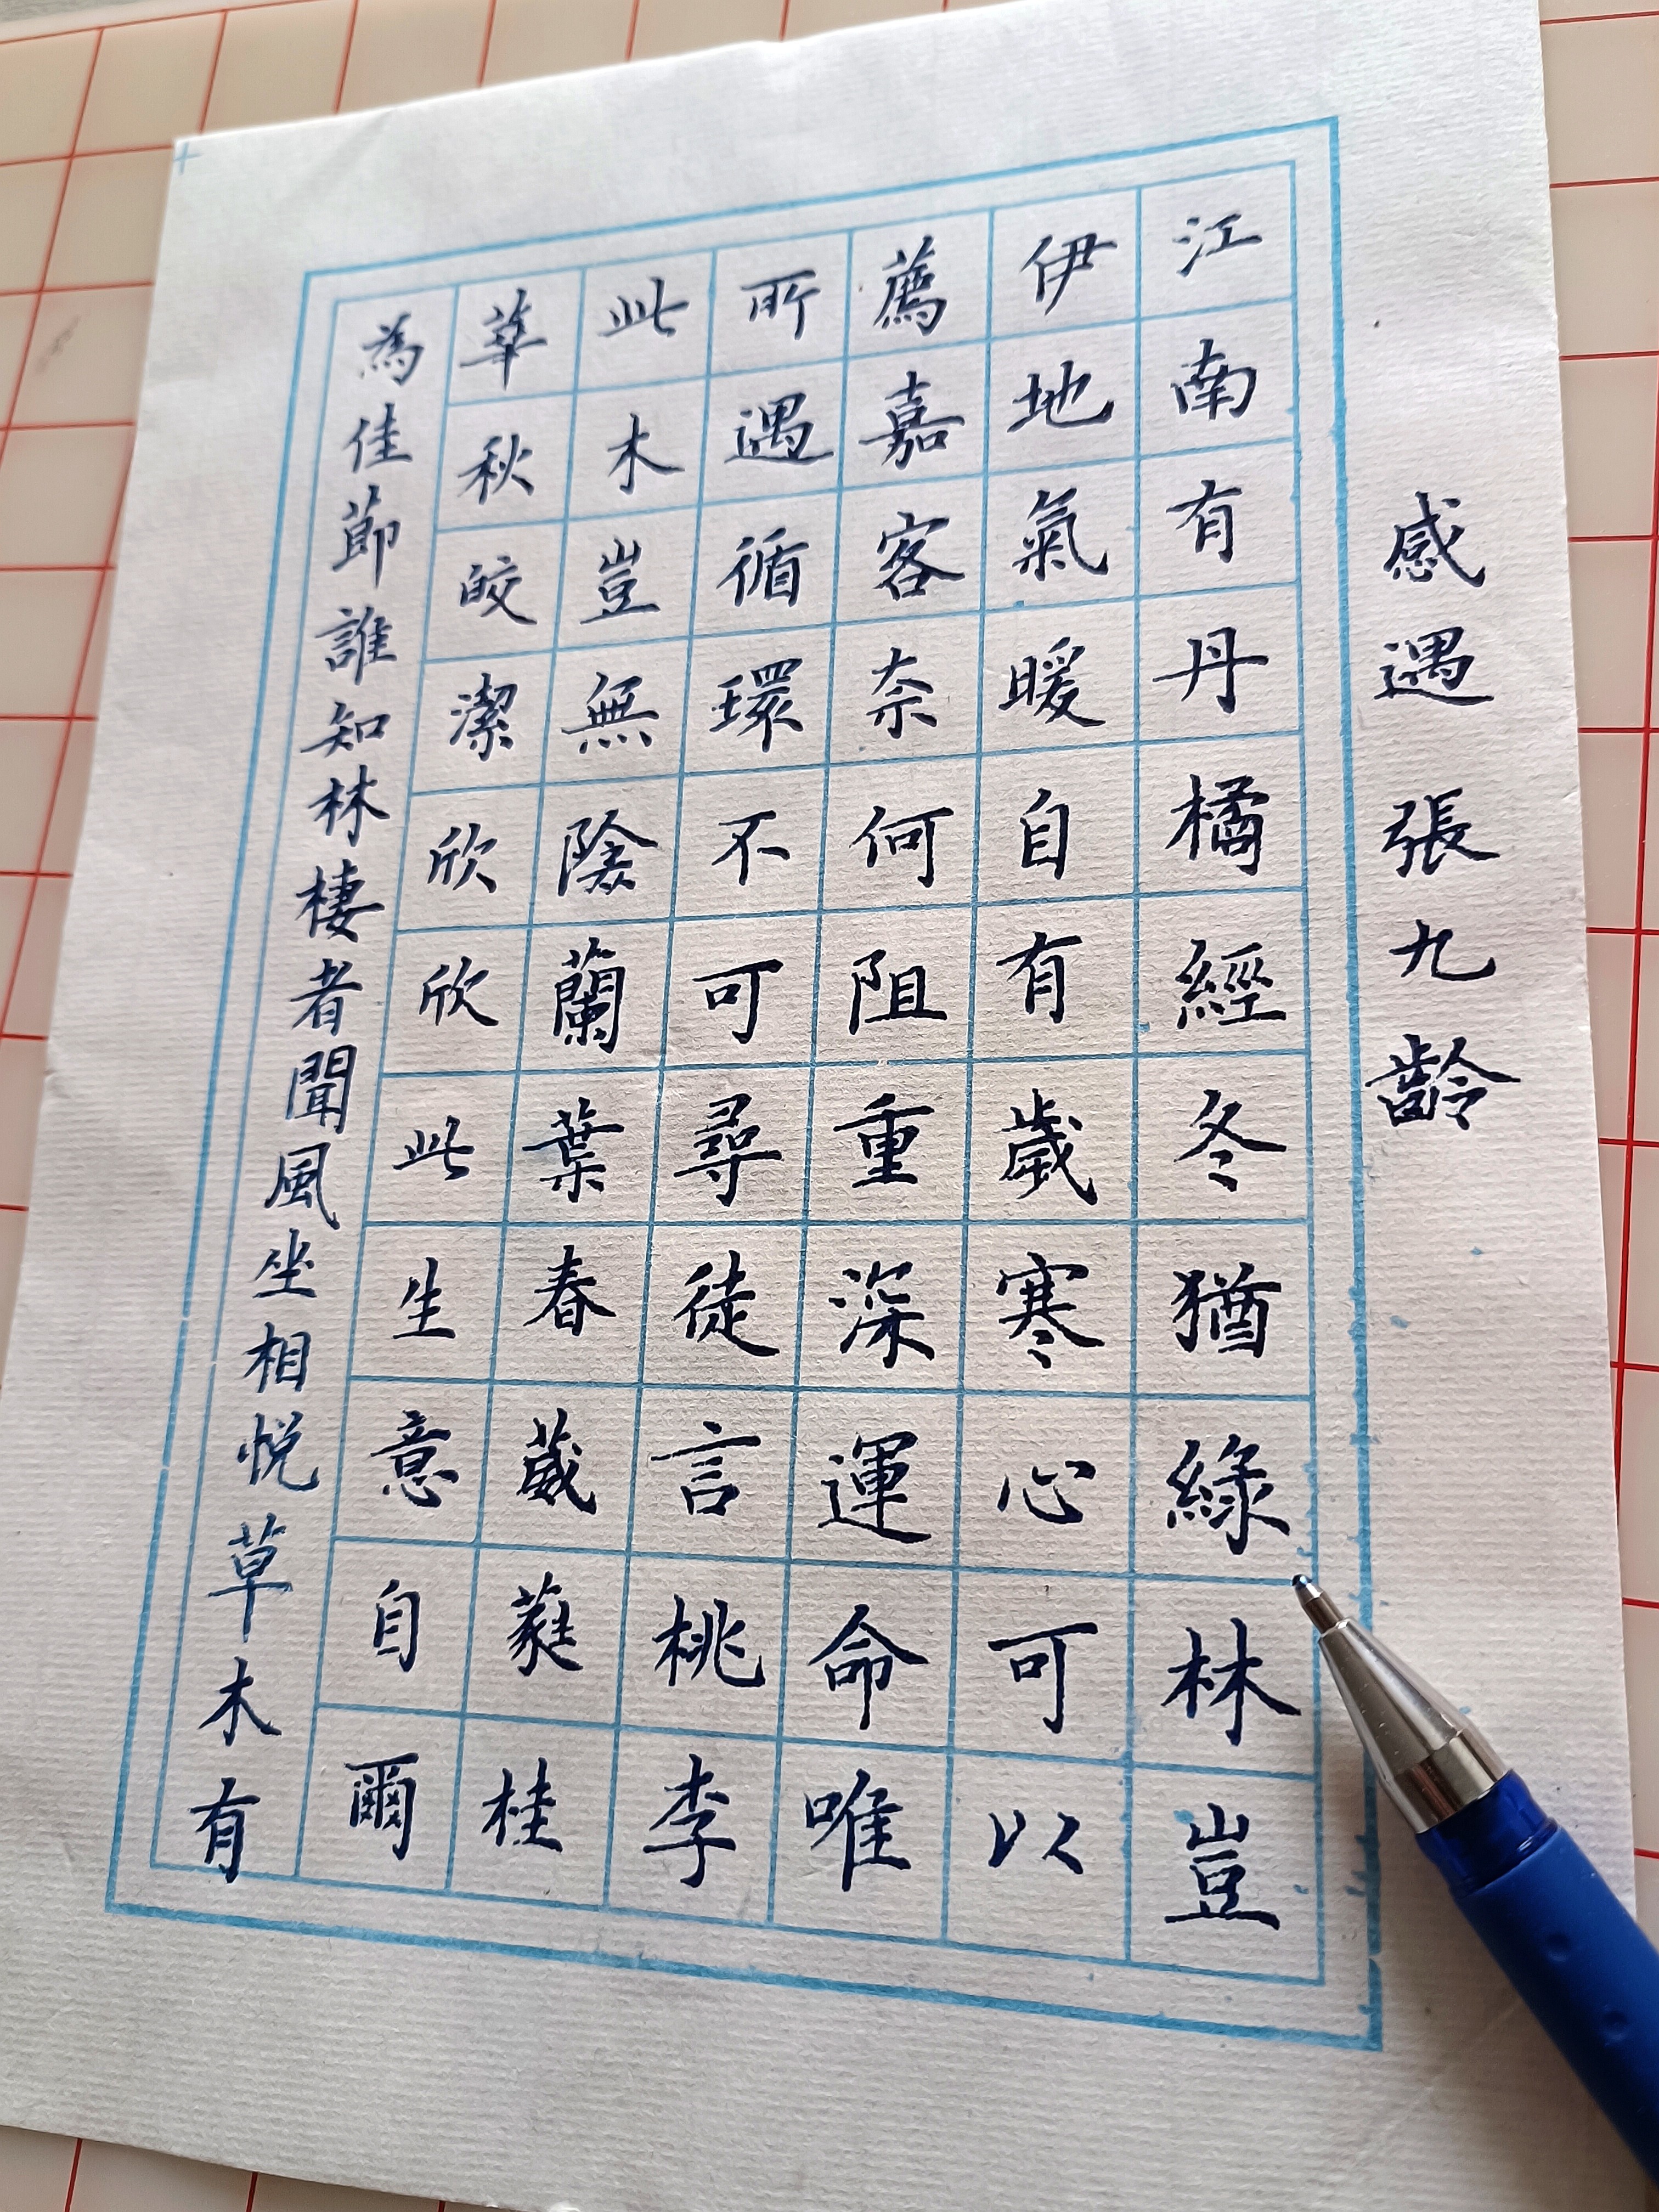 感遇 張九齡
江南有丹橘經冬猶綠林豈
伊地氣暖自有歲寒心可以
薦嘉客奈何阻重深運命唯
所遇循環不可尋徒言桃李
此木豈無陰蘭葉春葳蕤桂
華秋皎潔欣欣此生意自爾
為佳節誰知林棲者聞風坐相悅草木有